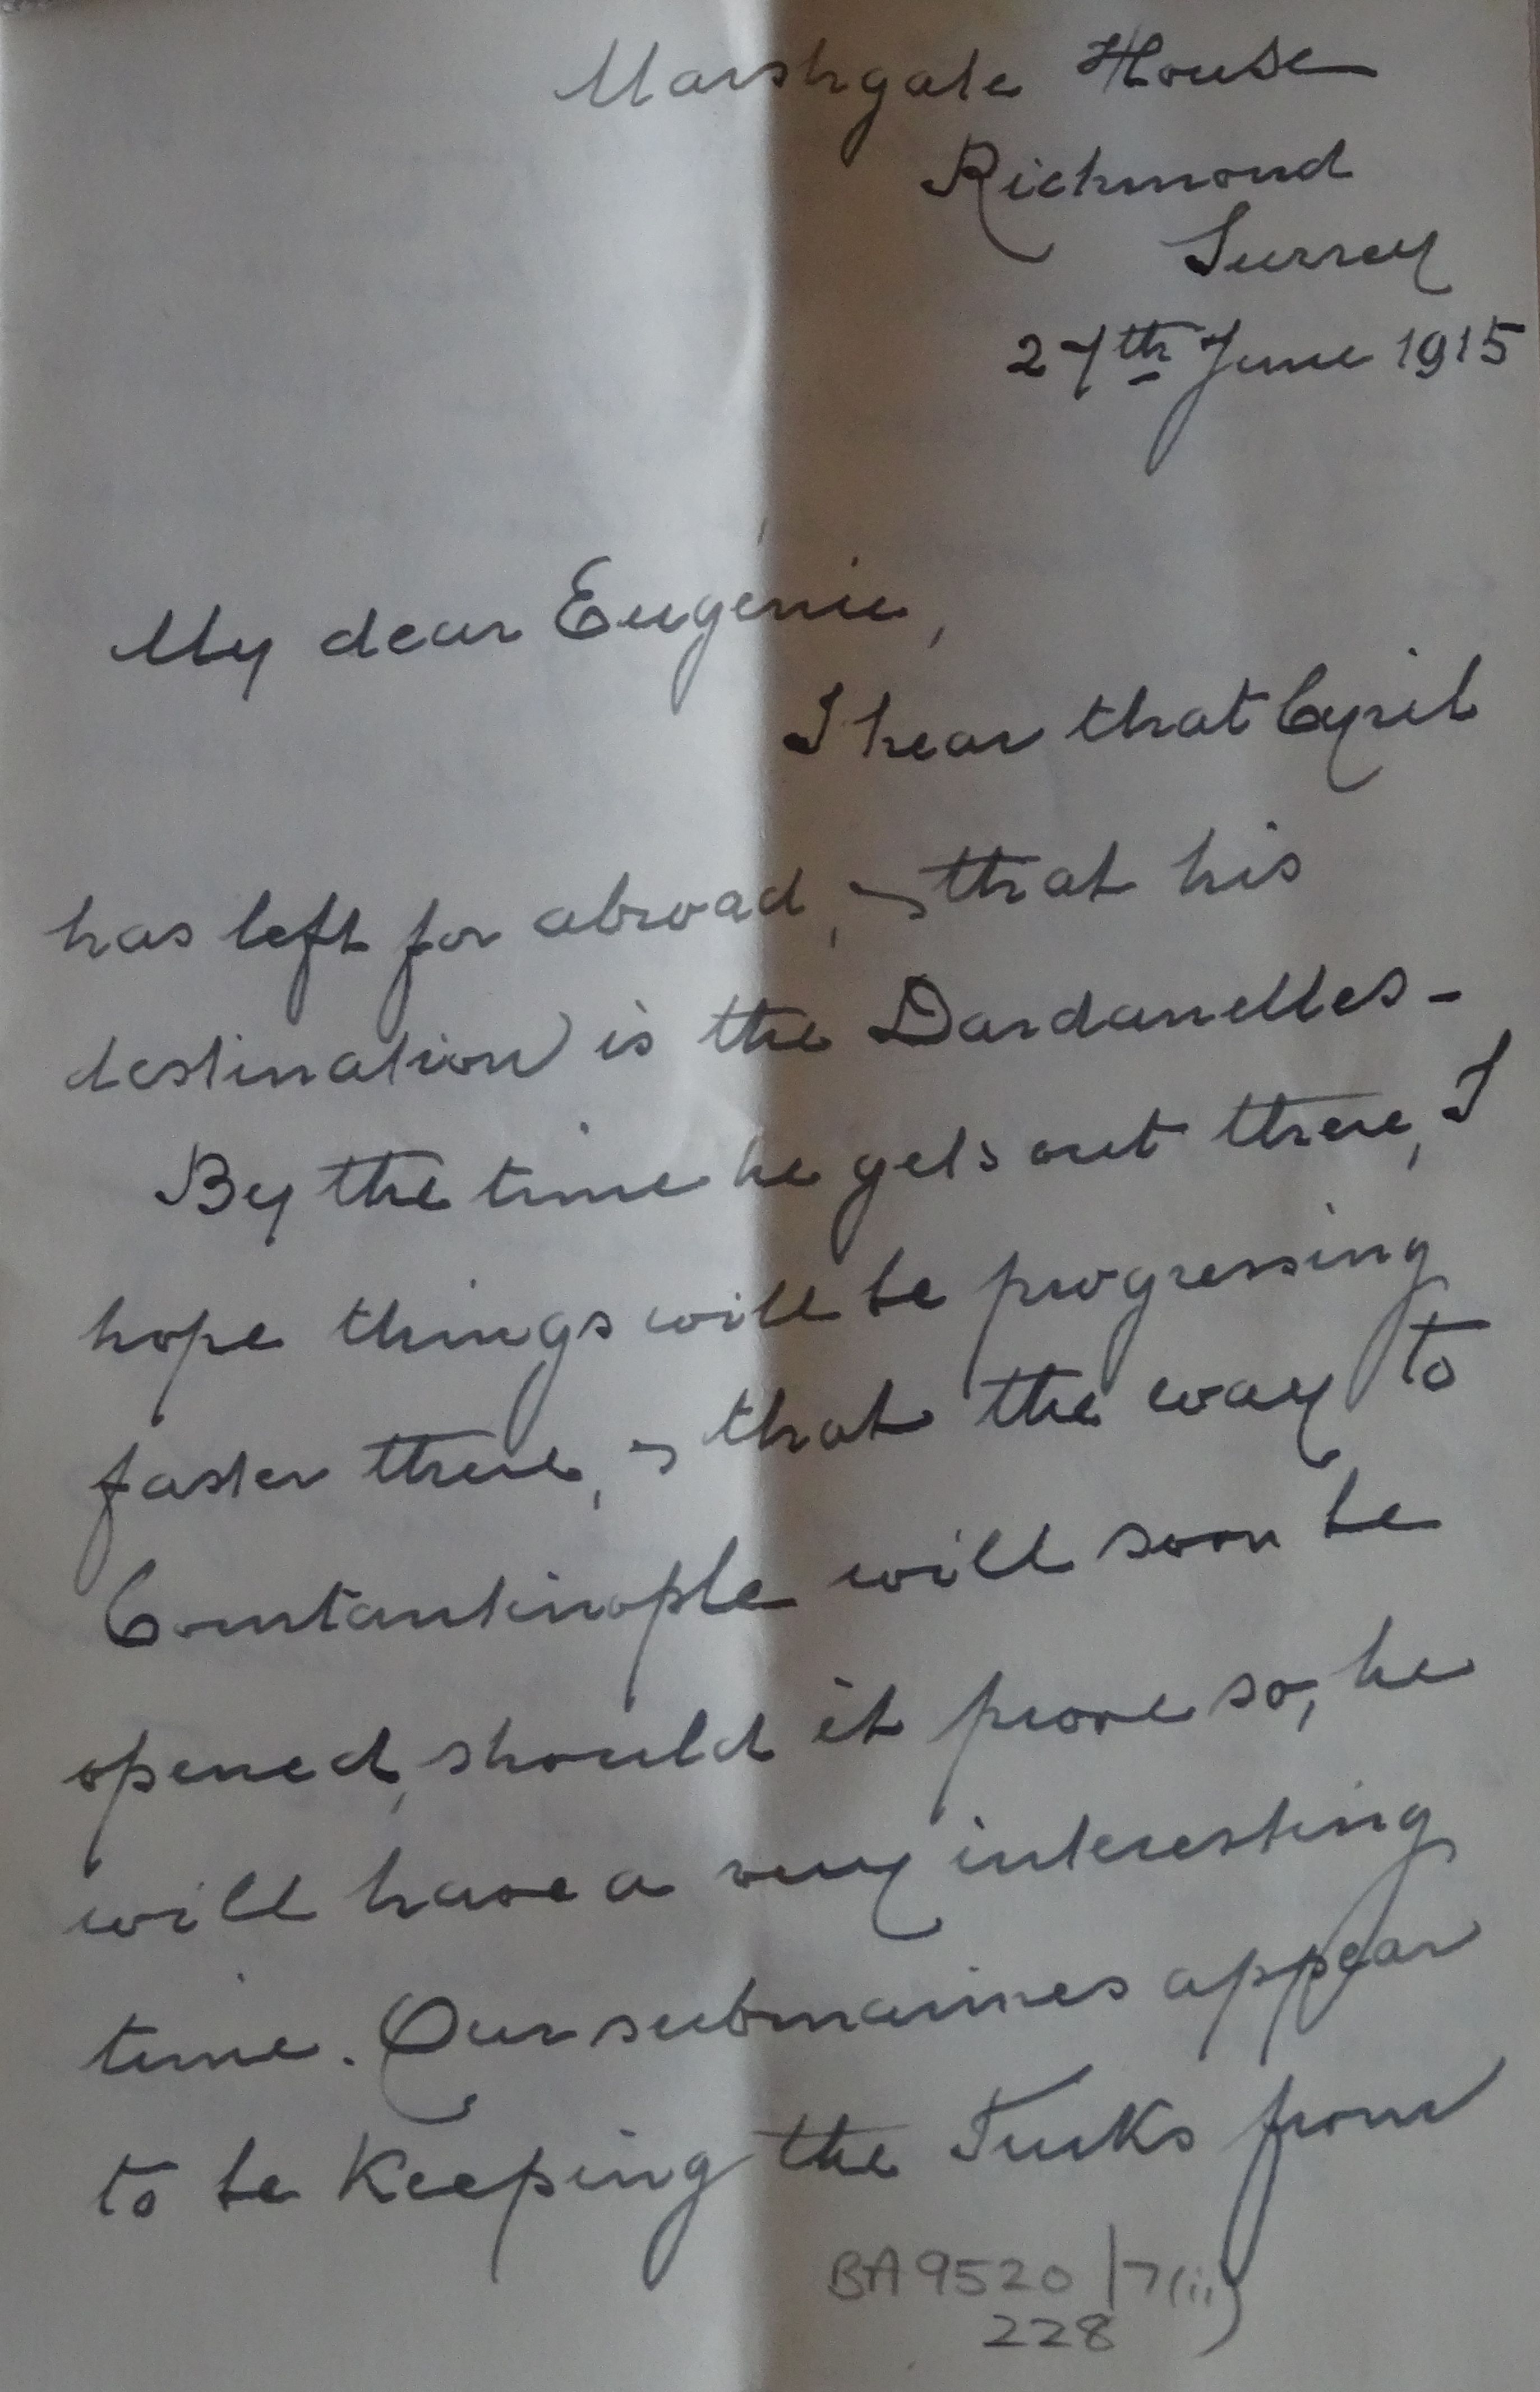 Marshgate House
Richmond
Surrey
27th June 1915
My dear Eugénie,
I hear that Cyril
has left for abroad, & that his
destination is the Dardanelles -
By the time he gets out there, I
hope things will be progressing
faster there, & that the way to
Constantinople will soon be
opened, should it prove so, he
will have a very interesting
time. Our submarines appear
to be keeping the Turks from
BA 9520 / 7(ii)
228